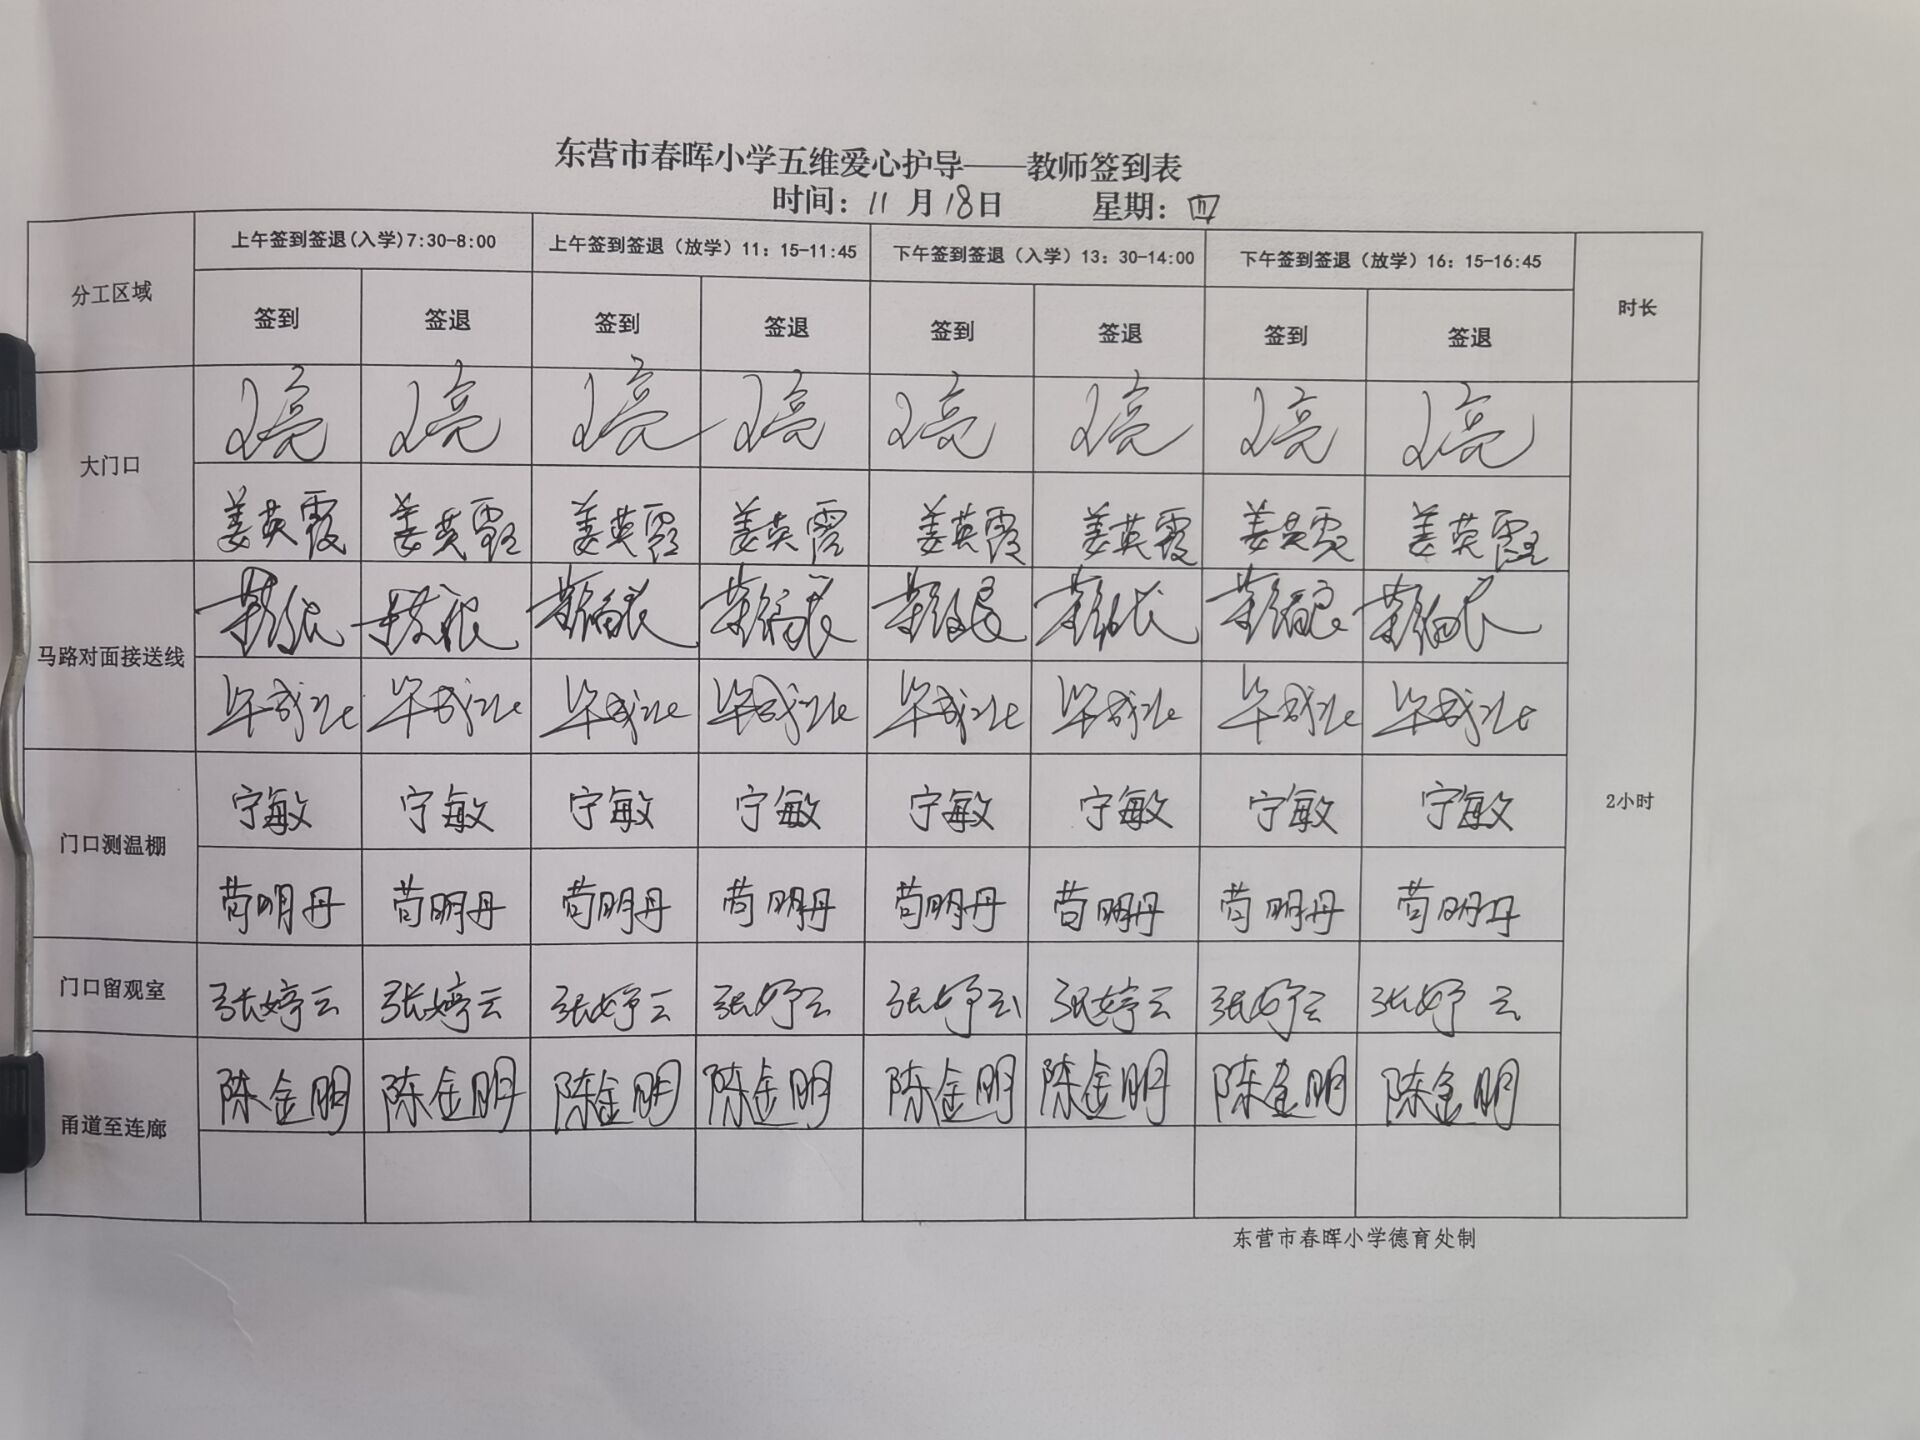 东营市春晖小学五维爱心护导——教师签到表
时间：11月18日 星期：四
分工区域 上午签到签退(入学)7:30-8:00 上午签到签退（放学）11：15-11:45 下午签到签退（入学）13：30-14:00 下午签到签退（放学）16：15-16:45 时长
签到 签退 签到 签退 签到 签退 签到 签退
大门口 王亮 王亮 王亮 王亮 王亮 王亮 王亮 王亮
姜英霞 姜英霞 姜英霞 姜英霞 姜英霞 姜英霞 姜英霞 姜英霞
马路对面接送线
门口测温棚 宁敏 宁敏 宁敏 宁敏 宁敏 宁敏 宁敏 宁敏 2小时
苟明丹 苟明丹 苟明丹 苟明丹 苟明丹 苟明丹 苟明丹 苟明丹
门口留观室 张婷云 张婷云 张婷云 张婷云 张婷云 张婷云 张婷云 张婷云
甬道至连廊 陈金明 陈金明 陈金明 陈金明 陈金明 陈金明 陈金明 陈金明
东营市春晖小学德育处制